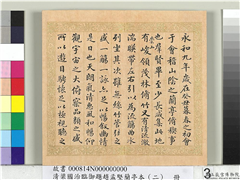 永和九年歲在癸丑暮春之初會
于會稽山陰之蘭亭脩稧事
也羣賢畢至少長咸集此地
有峻領茂林脩竹又有清流激
湍暎帶左右引以為流觴曲水
列坐其次雖無絲竹管弦之
盛一觴一詠亦足以暢敘幽情
是日也天朗氣清惠風和暢仰
觀宇宙之大俯察品類之盛
所以遊目騁懷足以極視聽之
故書 000814N000000000 冊
清梁國治臨御題趙孟堅蘭亭本(二)